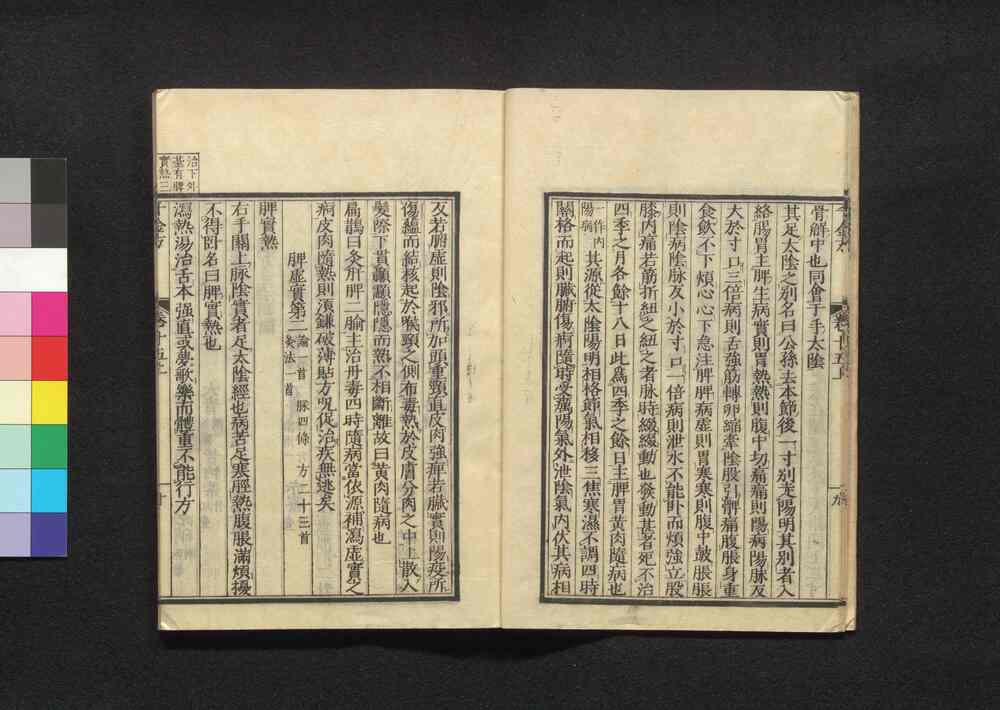 骨䯒中也同會于手太陰
其足太陰之別名曰公孫去本節後一寸別走陽明其別者入
絡腸胃主脾生病實則胃熱熱則腹中切痛痛則陽病陽脉反
大於寸口三倍病則舌強筋轉卵縮牽陰股引髀痛腹脹身重
食飲不下煩心心下急注脾脾病虛則胃寒寒則腹中鼓脹脹
則陰病陰脉反小於寸口一倍病則泄水不能卧而煩強立股
膝內痛若筋折紐之紐之者脉時綴綴動也發動甚者死不治
四季之月各餘十八日此爲四季之餘日主脾胃黃肉隨病也
一作內陽病其源從太陰陽明相格節氣相移三焦寒濕不調四時
關格而起則臟腑傷痾隨時受癘陽氣外泄陰氣內伏其病相
反若腑虛則陰邪所加頭重頸直皮肉強痺若臟實則陽疫所
傷蘊而結核起於喉頸之側布毒熱於皮膚分肉之中上散入
髮際下貫顳顬隱隱而熱不相斷離故曰黃肉隨病也
扁鵲曰灸肝脾二腧主治丹毒四時隨病當依源補瀉虛實之
痾皮肉隨熱則須鐮破薄貼方呪促治疾無逃矣
脾虛實第二
論一首 脉四條 方二十三首
灸法一首
脾實熱
右手關上脉陰實者足太陰經也病苦足寒脛熱腹脹滿煩擾
不得卧名曰脾實熱也
瀉熱湯治舌本強直或夢歌樂而體重不能行方
治下外
基有脾
實熱三